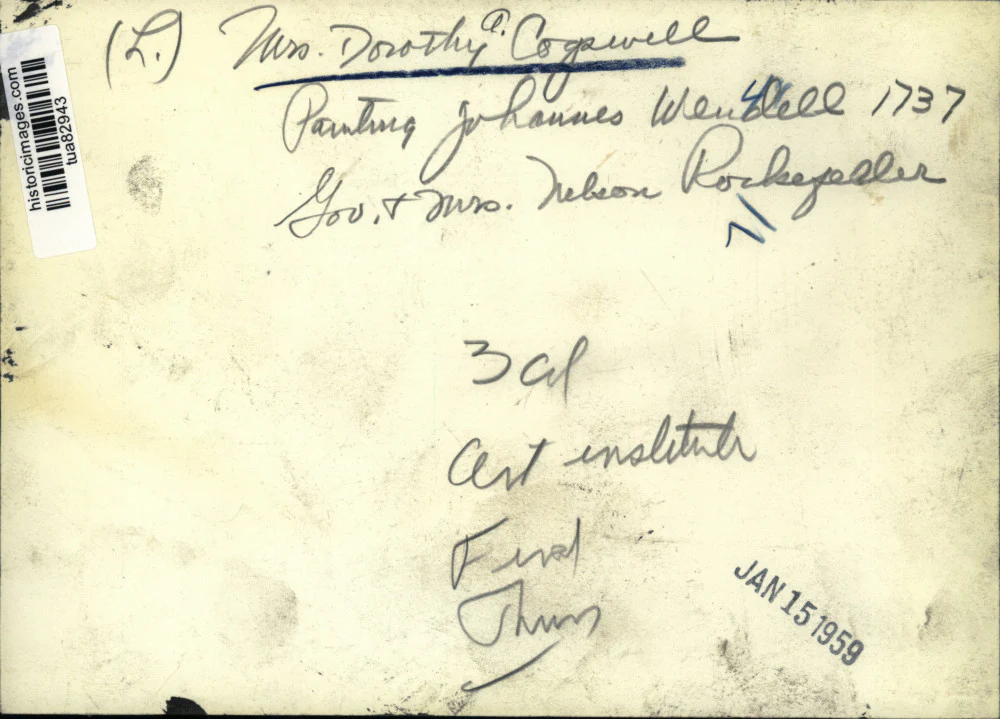 historicimages.com
tua82943
(L.) Mrs. Dorothy A. Cogswell
Painting Johannes Wendell 1737
Gov. & Mrs. Nelson Rockefeller
3 col
Art institute
Find
Thurs
JAN 15 1959